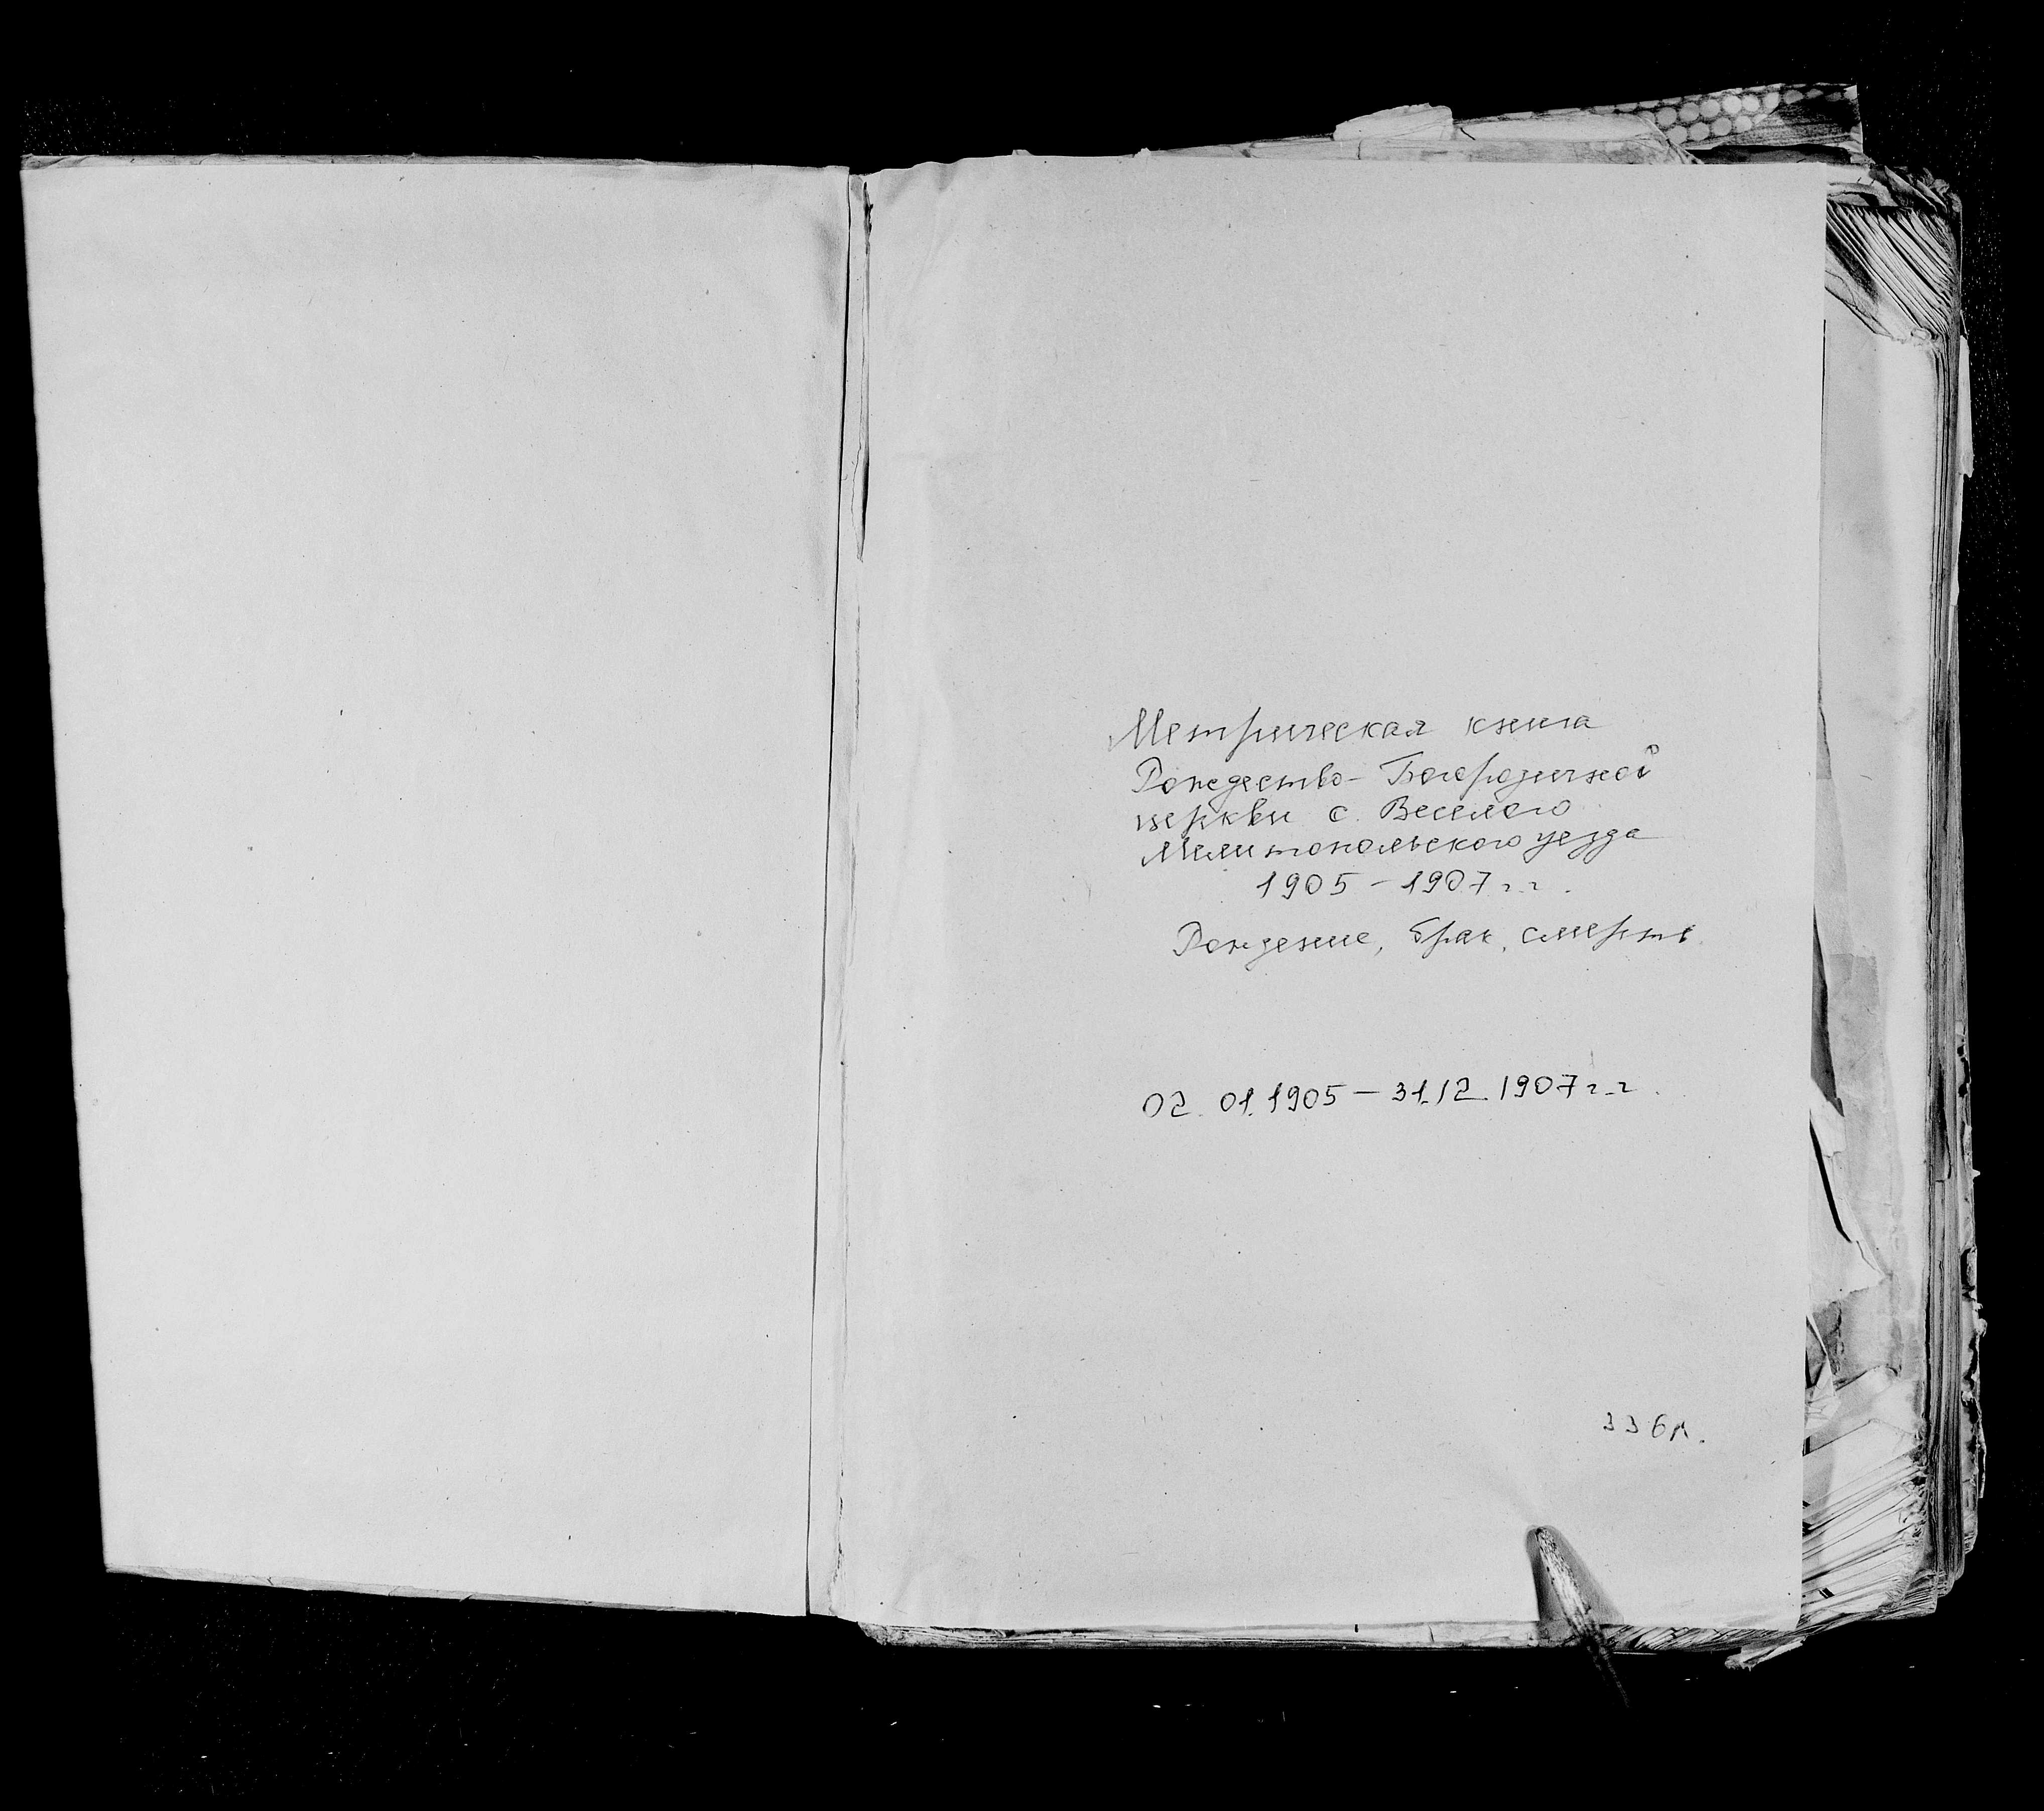 Метрическая книга
Рождество-Богородичной
церкви с. Веселого
Мелитопольского уезда
1905-1907 г.г.
Рождение, брак, смерть.
02.01.1905-31.12.1907 г.г.
336л.